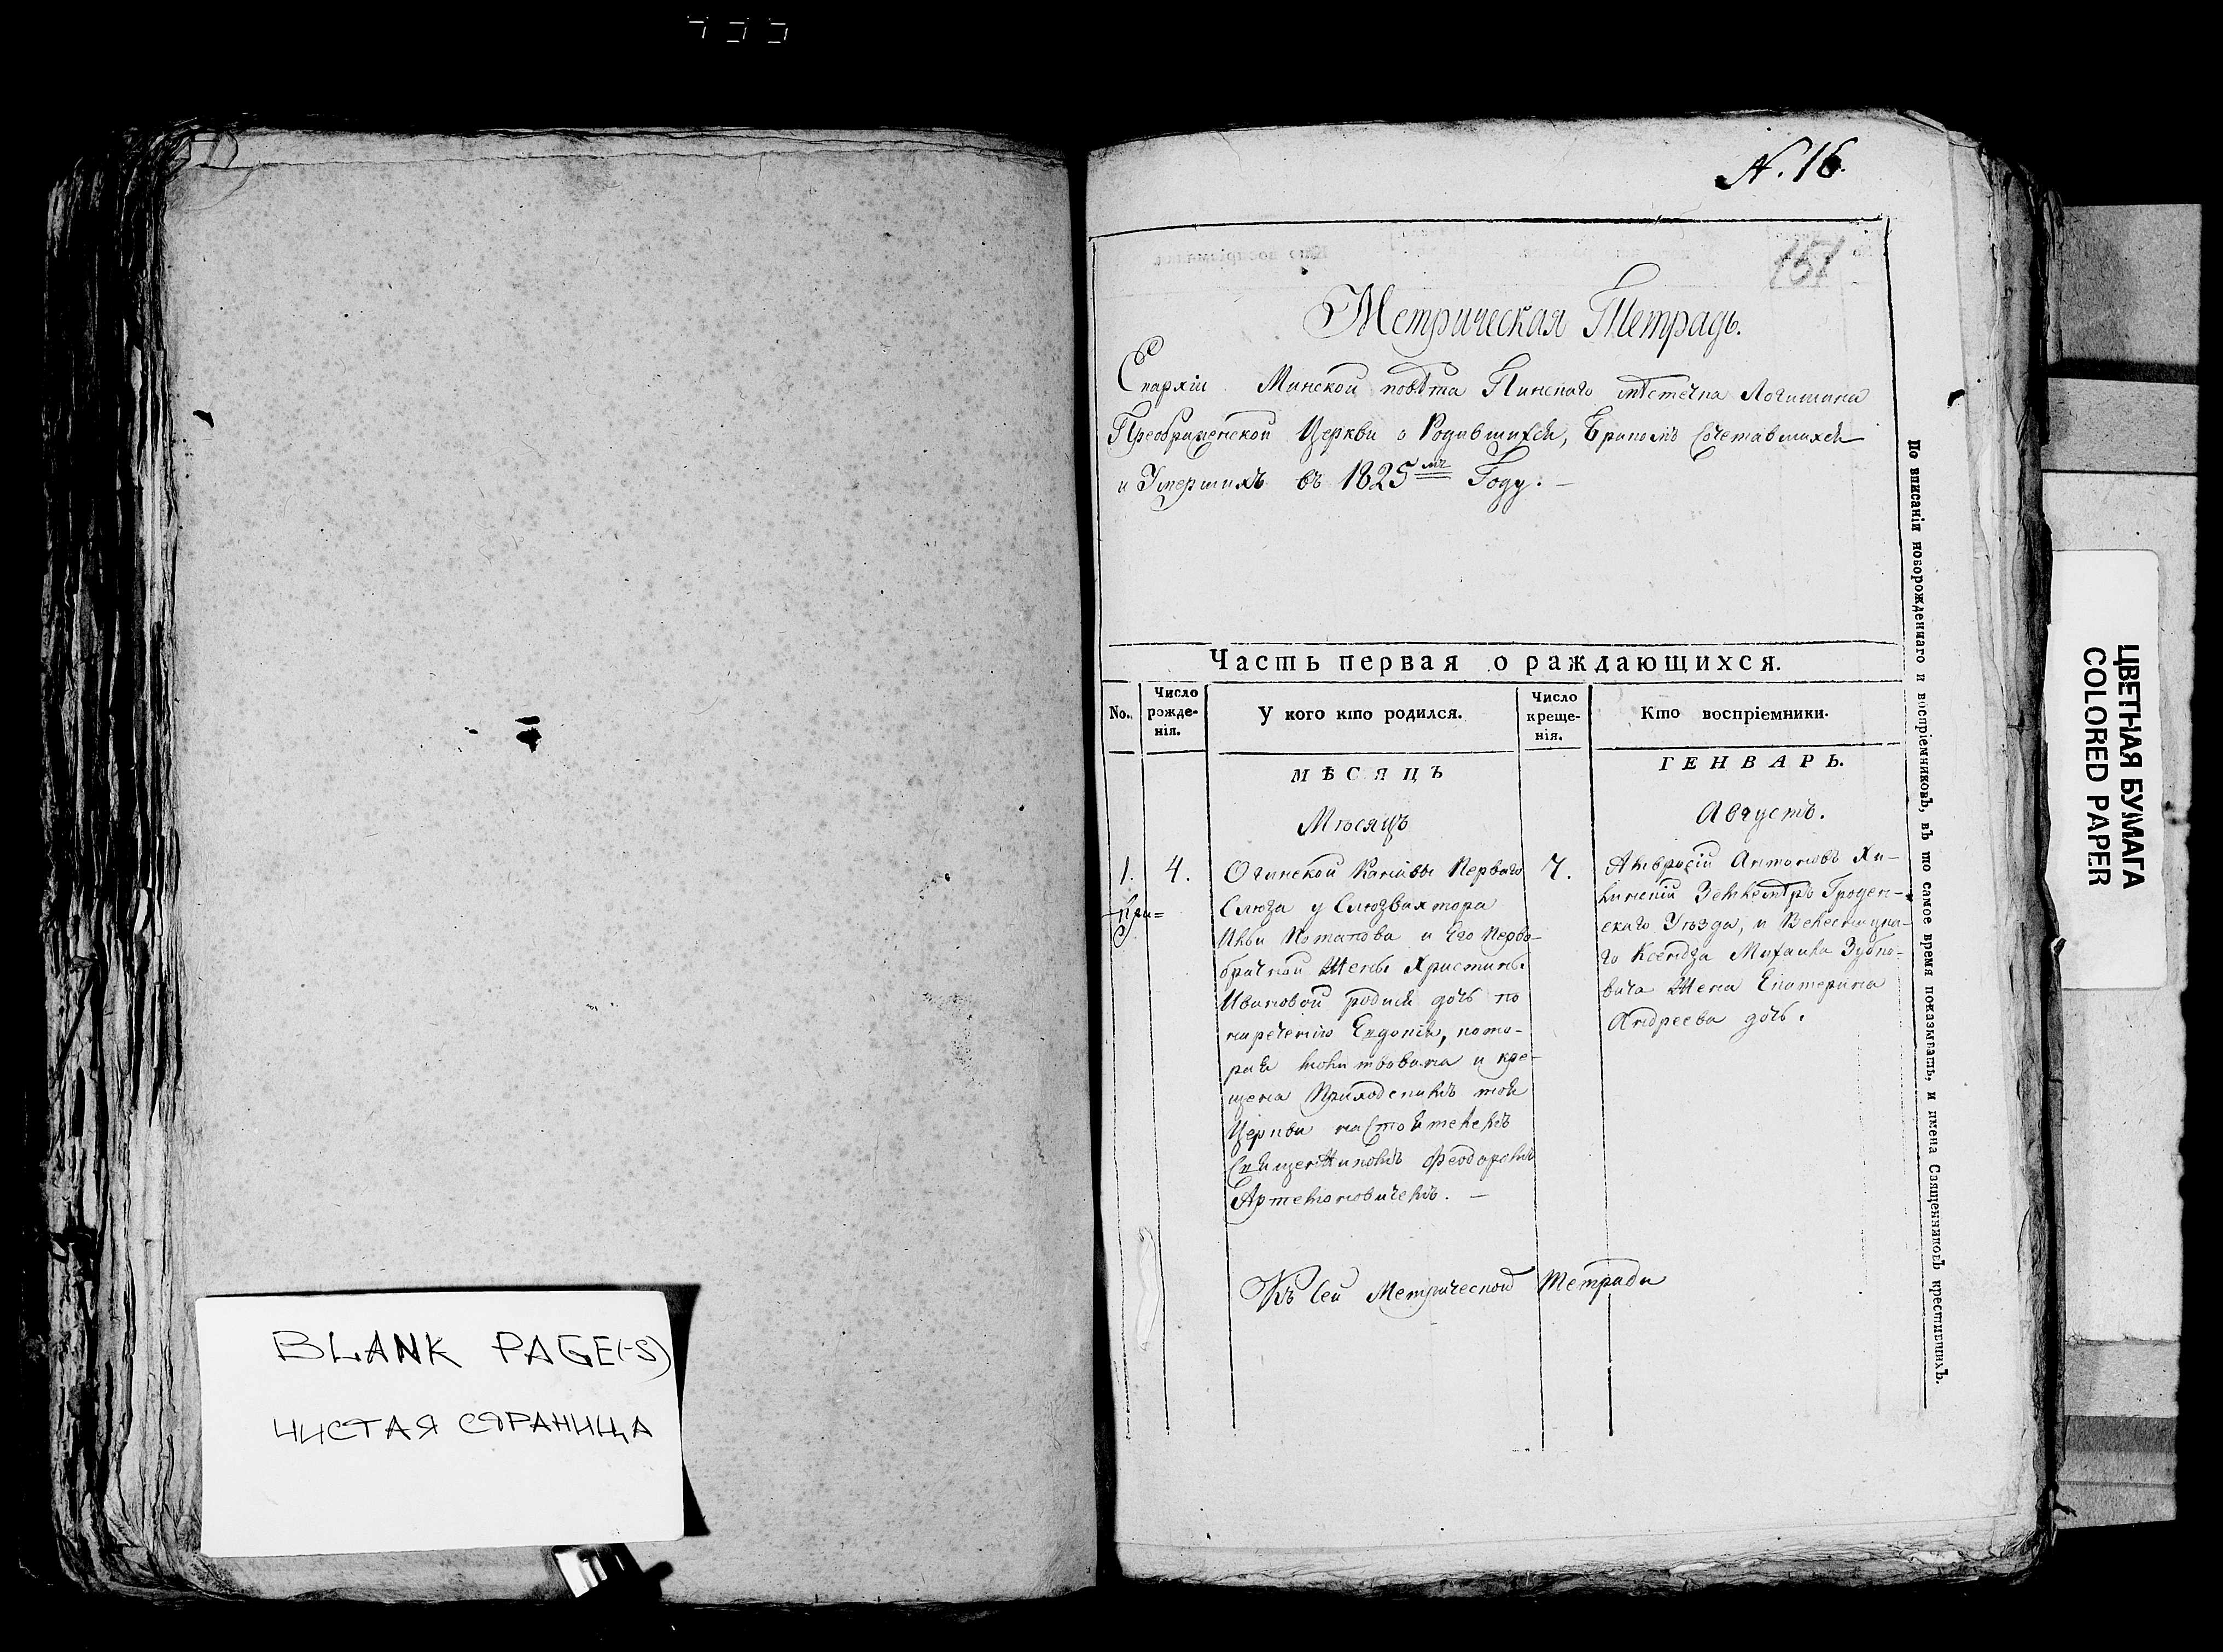 N. 16.
151
Метрическая Тетрадь.
Епархіи Минской повѣта Пинскаго мѣстечка Логишина
Преображенской Церкви о Родившихся, Бракомъ Сочетавшихся
и Умершихъ въ 1825мъ Году. —
Часть первая о раждающихся.
No. Число рожде-нія. У кого кто родился. Число креще-нія. Кто воспріемники.
МѢСЯЦЪ ГЕНВАРЬ.
Мѣсяцъ Августъ.
1. 4.
При=
Огинской Канавы Перваго
Слюза у Слюзвахтора
Ильи Потапова и Его Перво-
брачной Жены Христины
Ивановой родися дочь по
наречению Евдокія, кото-
рая молитвована и кре-
щена Приходскимъ той
Церкви настоятелемъ
Священникомъ Феодоромъ
Артемоновичемъ. —
7.
Амвросій Антоновъ
Землемѣръ Гроден-
скаго Уѣзда, и
го Ксендза Михаила
вича Жена Екатерина
Андреева дочь.
Къ сей Метрической Тетради
По вписаніи новорожденнаго и воспріемниковъ, въ то самое время показывать, и имена Священниковъ крестившихъ.
BLANK PAGE(-S)
ЧИСТАЯ СТРАНИЦА
ЦВЕТНАЯ БУМАГА
COLORED PAPER